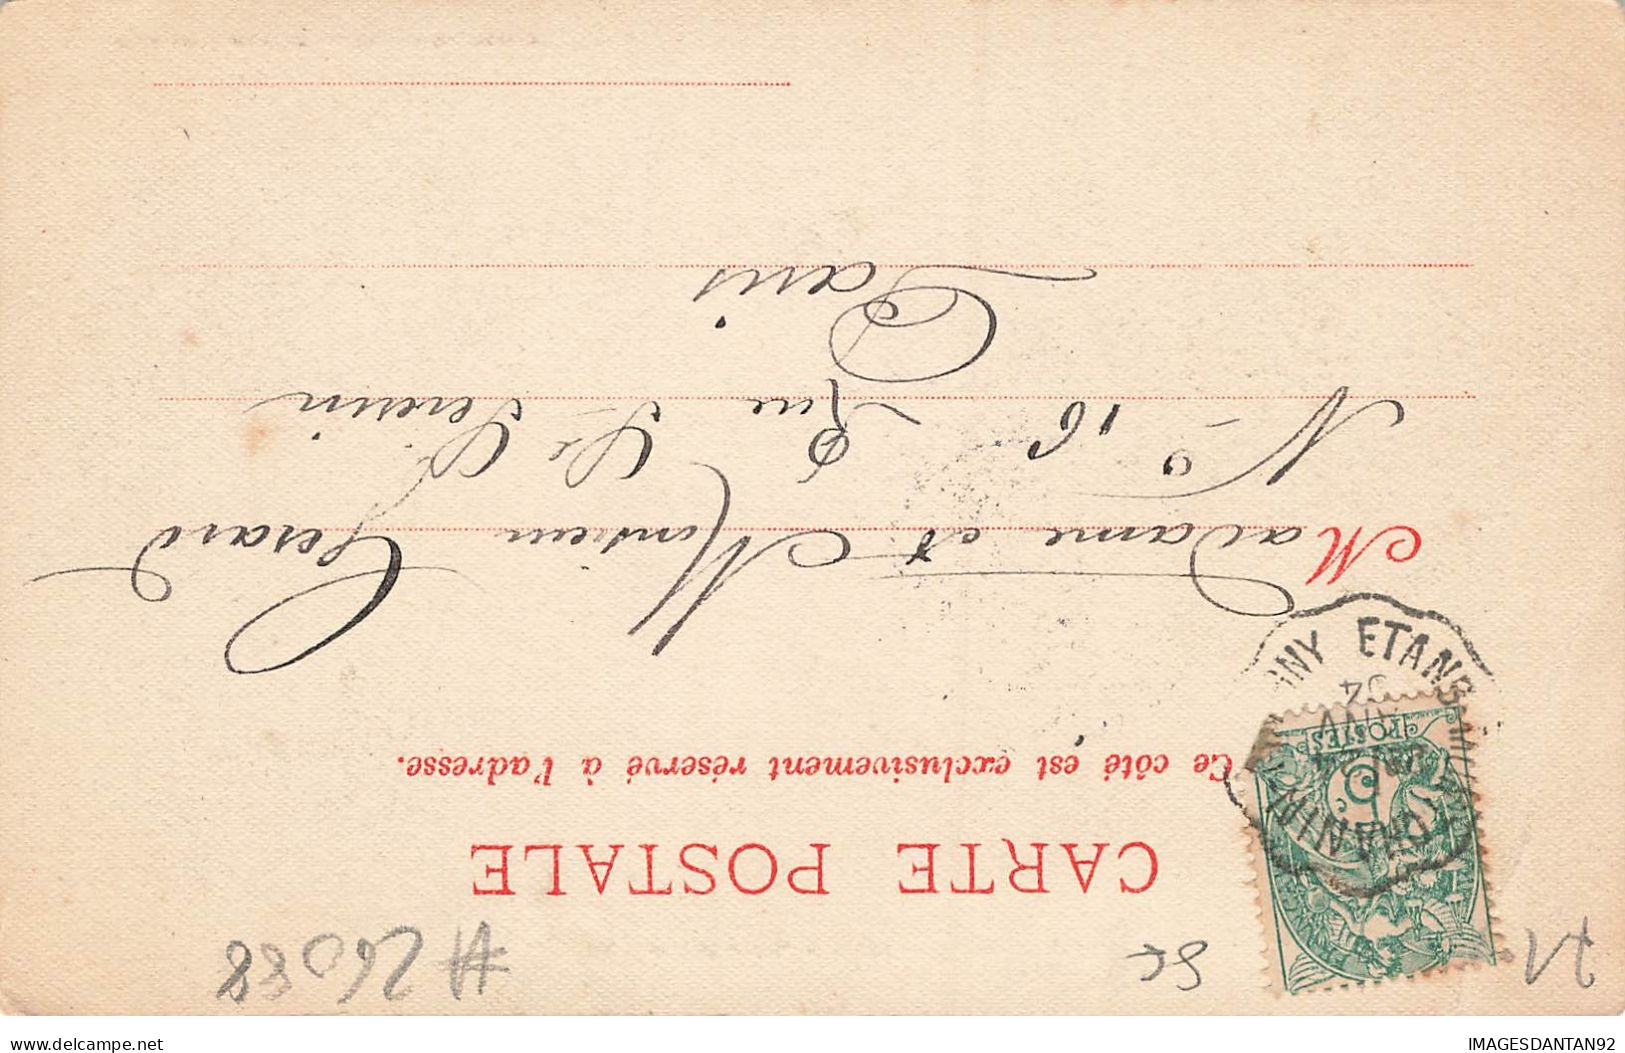 CARTE POSTALE
Ce côté est exclusivement réservé à l'adresse.
Madame et Monsieur Gerard
N° 16 Rue St Severin
Paris
#26088
71
ETANG
04
POSTES
5c
delcampe.net
IMAGESDANTAN92